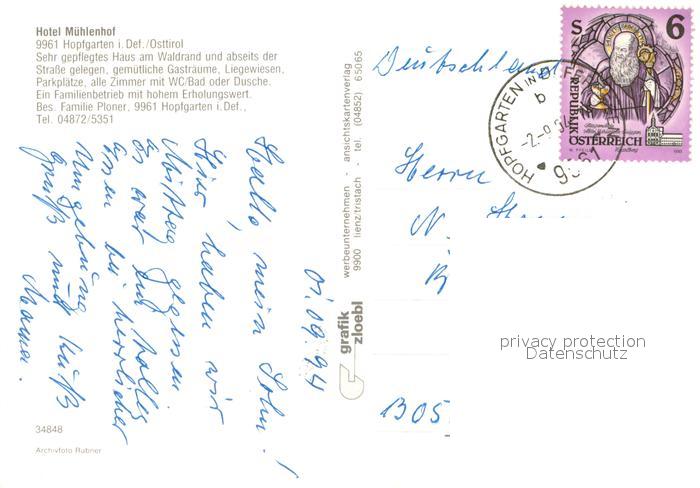 Hotel Mühlenhof
9961 Hopfgarten i. Def./Osttirol
Sehr gepflegtes Haus am Waldrand und abseits der
Straße gelegen, gemütliche Gasträume, Liegewiesen,
Parkplätze, alle Zimmer mit WC/Bad oder Dusche.
Ein Familienbetrieb mit hohem Erholungswert.
Bes. Familie Ploner, 9961 Hopfgarten i. Def.,
Tel. 04872/5351
01.09.94
Hallo, mein Sohn!
Hier haben wir
Mittag gegessen.
Es war ein tolles
Essen bei herrlicher
Umgebung
Gruß und Kuß
Mama.
34848
Archivfoto Rubner
werbeunternehmen - ansichtskartenverlag
9900 lienz/tristach - tel. (04852) 65065
grafik
zloebl
Deutschland
HOPFGARTEN IN
b
-2.-9.
S 6
REPUBLIK
ÖSTERREICH
Herrn
N.
1305
privacy protection
Datenschutz